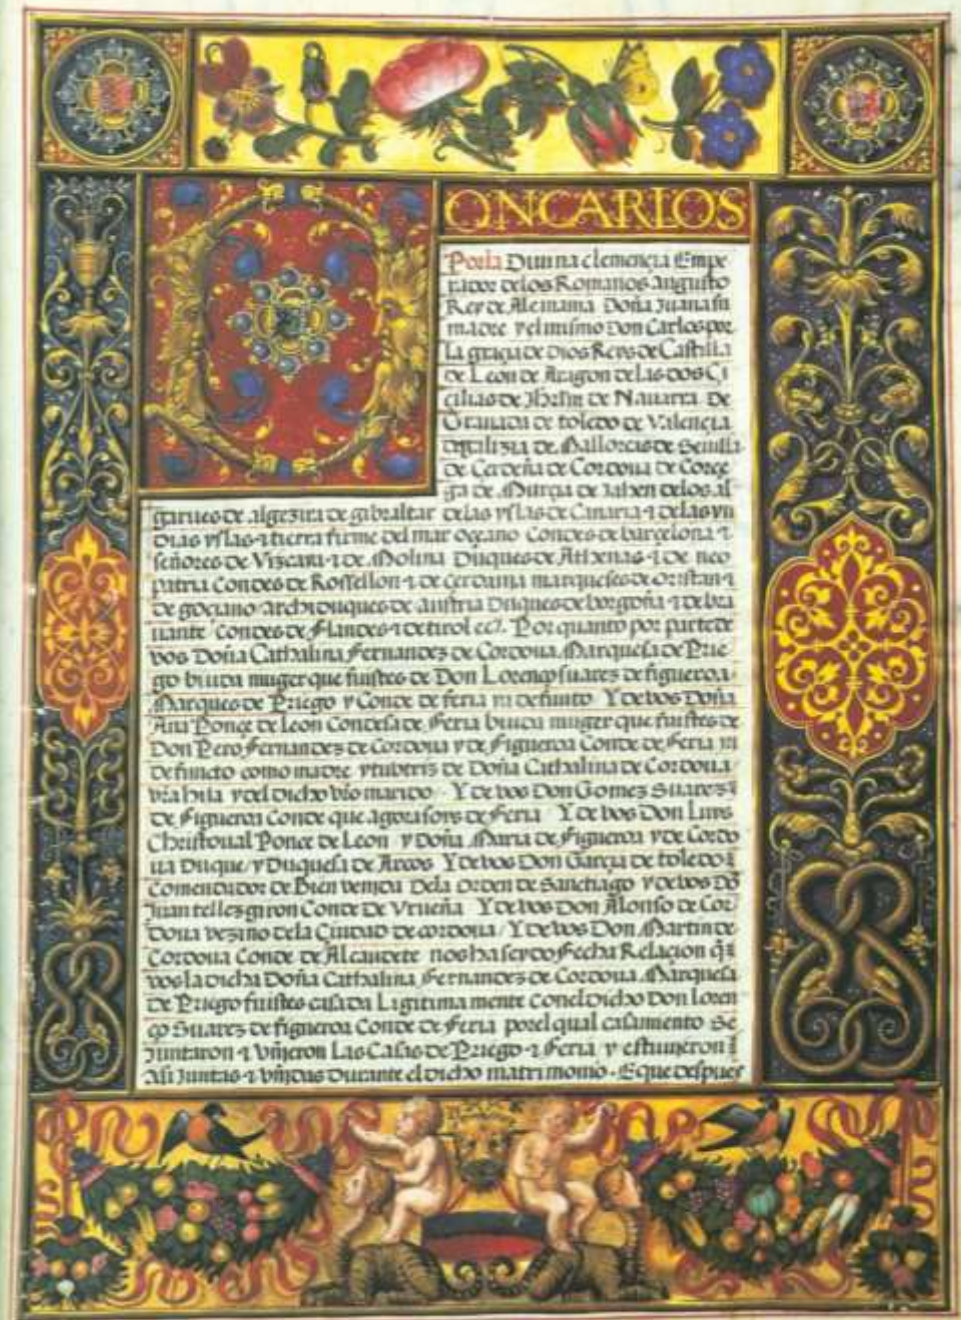 DON CARLOS
Por la Diuina clemençia Empe
rador delos Romanos augusto
Rey de Alemania Doña Juana su
madre y el mismo Don Carlos por
la graçia de Dios Reys de Castilla
de Leon de Aragon delas dos Çi
çilias de Jhrlm de Nauarra De
Granada de toledo de Valençia
de galizia de Mallorcas de Seuilla
de Cerdeña de Cordoua de Corçe
ga de Murçia de Jahen delos al
garues de algezira de gibraltar delas yslas de Canaria ⁊ delas yn
dias yslas ⁊ tierra firme del mar oçeano Condes de barçelona ⁊
señores de Vizcaia ⁊ de Molina Duques de Athenas ⁊ de neo
patria Condes de Rossellon ⁊ de Cerdania marqueses de oristan ⁊
de goçiano archiduques de austria Duques de borgoña ⁊ de bra
uante Condes de Flandes ⁊ de tirol ec. Por quanto por parte de
vos Doña Cathalina Fernandez de Cordoua Marquesa de Prie
go biuda muger que fuistes de Don Lorenço suarez de figueroa
Marques de Priego y Conde de feria ya defunto Y de vos Doña
Ana Ponçe de Leon Condesa de Feria biuda muger que fuistes de
Don Pero Fernandez de Cordoua y de Figueroa Conde de Feria ya
defuncto como madre y tutriz de Doña Cathalina de Cordoua
vra hija y del dicho vro marido Y de vos Don Gomez Suarez
de Figueroa Conde que agora soys de Feria Y de vos Don Luys
Christoual Ponce de Leon y Doña Maria de Figueroa y de Cordo
ua Duque y Duquesa de Arcos Y de vos Don Garçia de toledo
Comendador de Bien venida Dela Orden de Sanctiago y de vos Dō
Juan tellez giron Conde De Vrueña Y de vos Don Alonso de Cor
doua vezino dela Ciudad de cordoua Y de vos Don Martin de
Cordoua Conde de Alcaudete nos ha seydo Fecha Relacion q̄
vos la dicha Doña Cathalina Fernandez de Cordoua Marquesa
de Priego fuistes casada Ligitima mente Con el dicho Don Loren
ço Suarez de figueroa Conde de Feria por el qual casamiento Se
Juntaron ⁊ vnjeron Las Casas de Priego ⁊ Feria y estuuieron
asi Juntas ⁊ vnjdas Durante el dicho matrimonio. E que despues